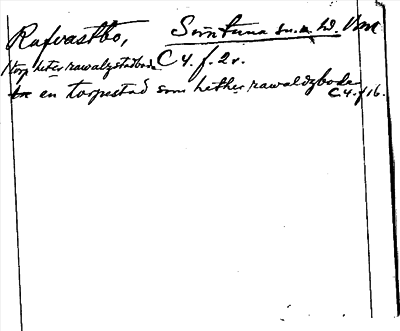 Rafvastbo, Simtuna sn. o. hd. Vml
1 torp heter rawalzstadboda C 4. f. 2 v.
en torpestad som hether rawaldzboda
C. 4. f 16.